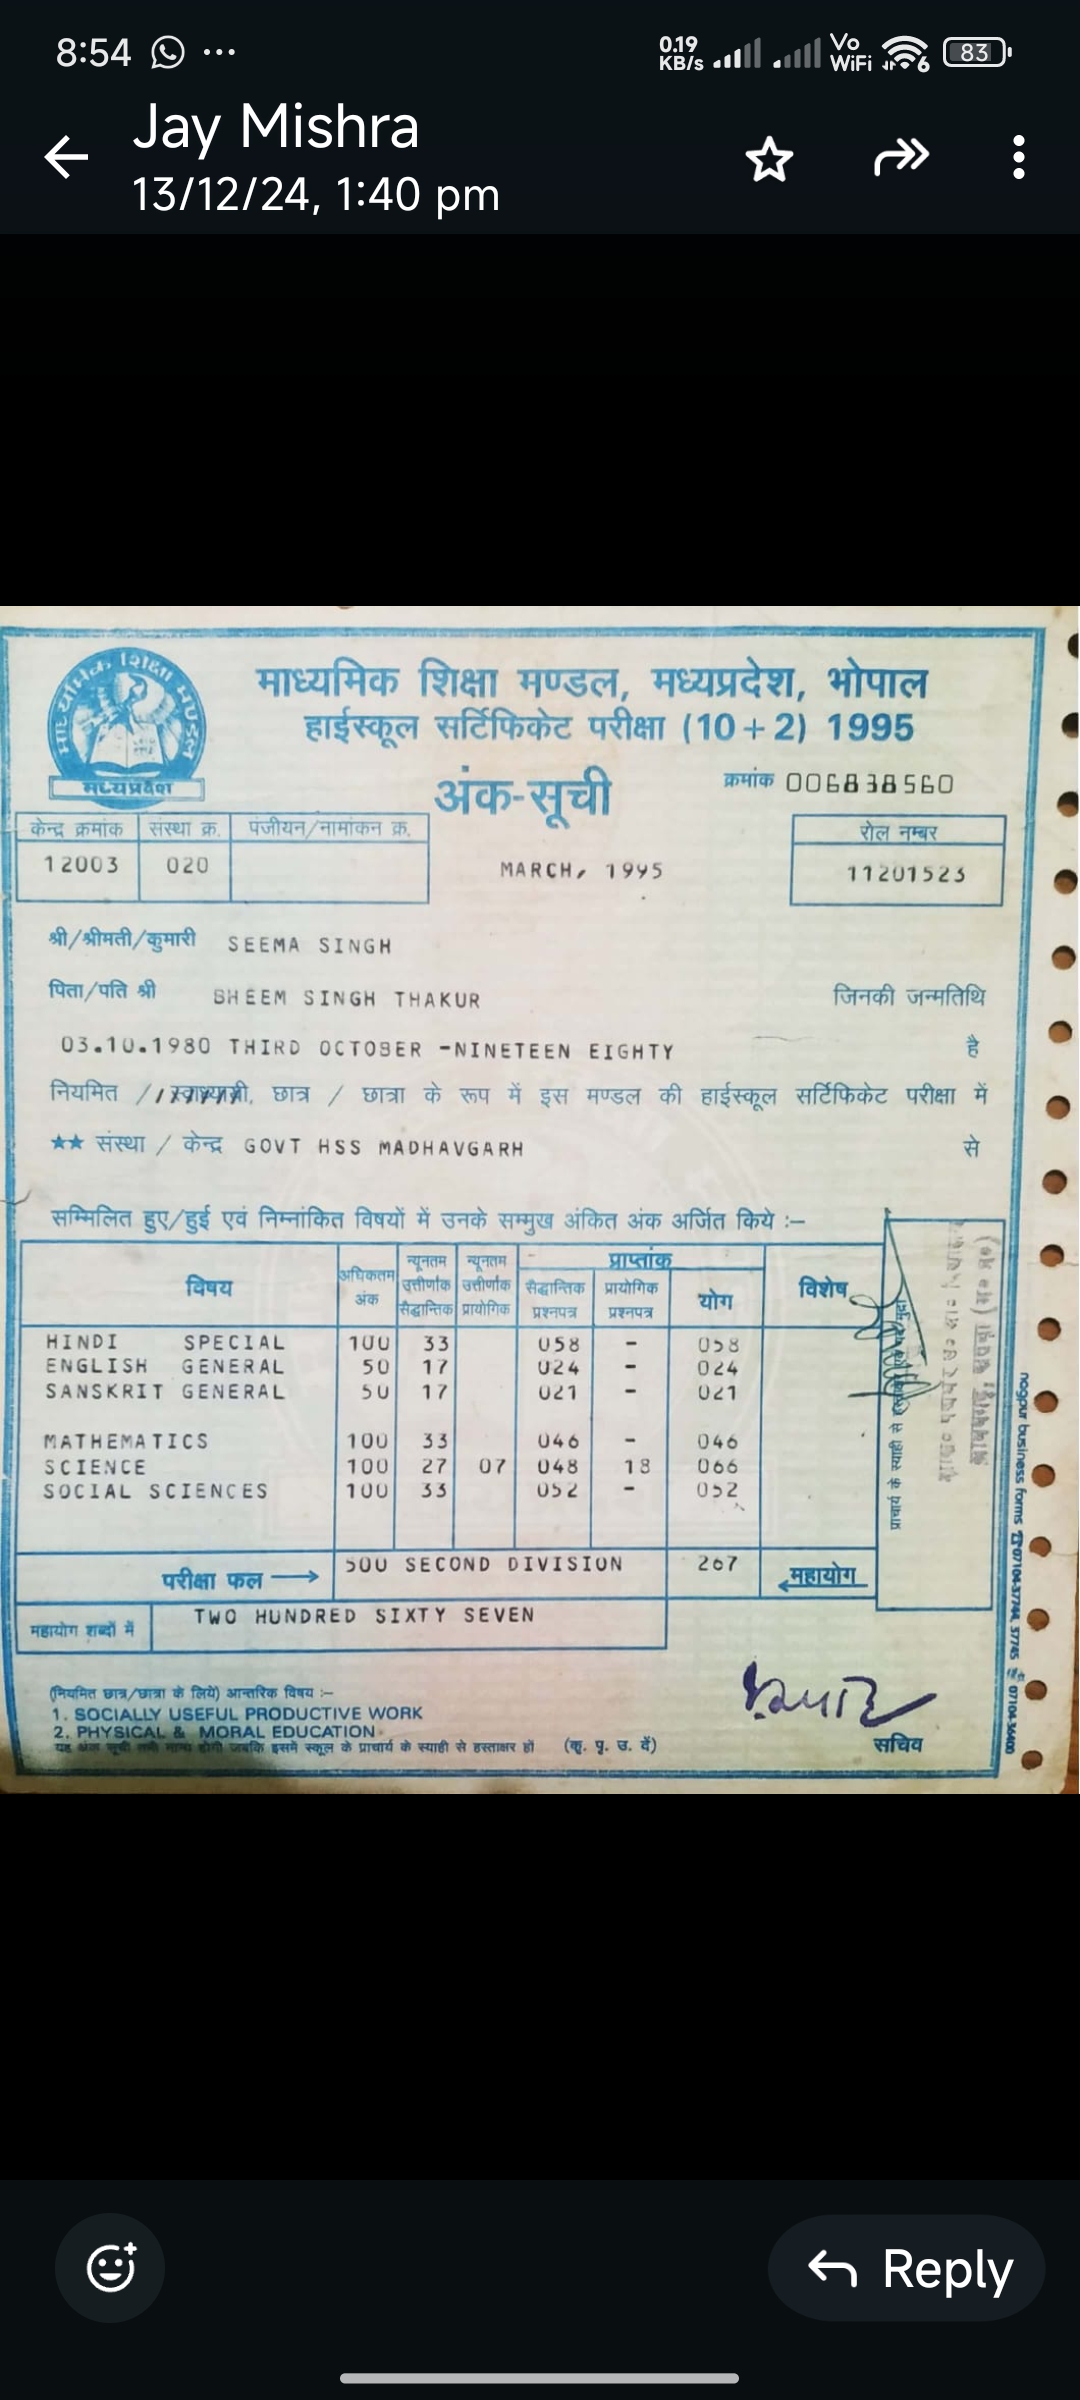 8:54
0.19 KB/s Vo WiFi 6 83
Jay Mishra
13/12/24, 1:40 pm
माध्यमिक शिक्षा मण्डल
मध्यप्रदेश
माध्यमिक शिक्षा मण्डल, मध्यप्रदेश, भोपाल
हाईस्कूल सर्टिफिकेट परीक्षा (10+2) 1995
अंक-सूची
क्रमांक 006838560
केन्द्र क्रमांक संस्था क्र. पंजीयन/नामांकन क्र. रोल नम्बर
12003 020 MARCH, 1995 11201523
श्री/श्रीमती/कुमारी SEEMA SINGH
पिता/पति श्री BHEEM SINGH THAKUR जिनकी जन्मतिथि
03.10.1980 THIRD OCTOBER -NINETEEN EIGHTY है
नियमित / स्वाध्यायी, छात्र / छात्रा के रूप में इस मण्डल की हाईस्कूल सर्टिफिकेट परीक्षा में
★★ संस्था / केन्द्र GOVT HSS MADHAVGARH से
सम्मिलित हुए/हुई एवं निम्नांकित विषयों में उनके सम्मुख अंकित अंक अर्जित किये :–
विषय अधिकतम अंक न्यूनतम उत्तीर्णांक सैद्धान्तिक न्यूनतम उत्तीर्णांक प्रायोगिक प्राप्तांक सैद्धान्तिक प्रश्नपत्र प्रायोगिक प्रश्नपत्र योग विशेष
HINDI SPECIAL 100 33 058 - 058
ENGLISH GENERAL 50 17 024 - 024
SANSKRIT GENERAL 50 17 021 - 021
MATHEMATICS 100 33 046 - 046
SCIENCE 100 27 07 048 18 066
SOCIAL SCIENCES 100 33 052 - 052
परीक्षा फल 500 SECOND DIVISION 267 महायोग
महायोग शब्दों में TWO HUNDRED SIXTY SEVEN
प्राचार्य के स्याही से
nagpur business forms 07104-37744, 37745 07104-36400
(नियमित छात्र/छात्रा के लिये) आन्तरिक विषय :–
1. SOCIALLY USEFUL PRODUCTIVE WORK
2. PHYSICAL & MORAL EDUCATION
यह अंक सूची तभी मान्य होगी जबकि इसमें स्कूल के प्राचार्य के स्याही से हस्ताक्षर हों (कृ. पृ. उ. दें) सचिव
Reply